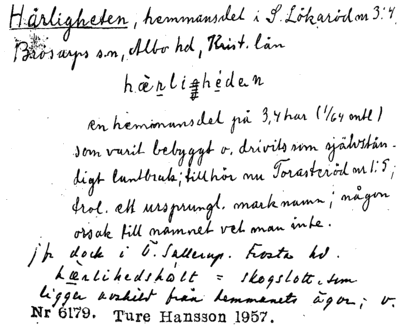 Härligheten, hemmansdel i S. Lökaröd nr 3:4
Brösarps sn, Albo hd, Krist. län
hærlighédan
en hemmansdel på 3,4 har (1/64 mtl)
som varit bebyggt o. drivits som självstän-
digt lantbruk; tillhör nu Torasteröd nr 1:5;
trol. ett ursprungl. marknamn; någon
orsak till namnet vet man inte.
jfr dock i Ö. Sallerup. Frosta hd.
hærlihedshålt = skogslott, som
ligger avskilt från hemmanets ägor; v.
Nr 6179. Ture Hansson 1957.